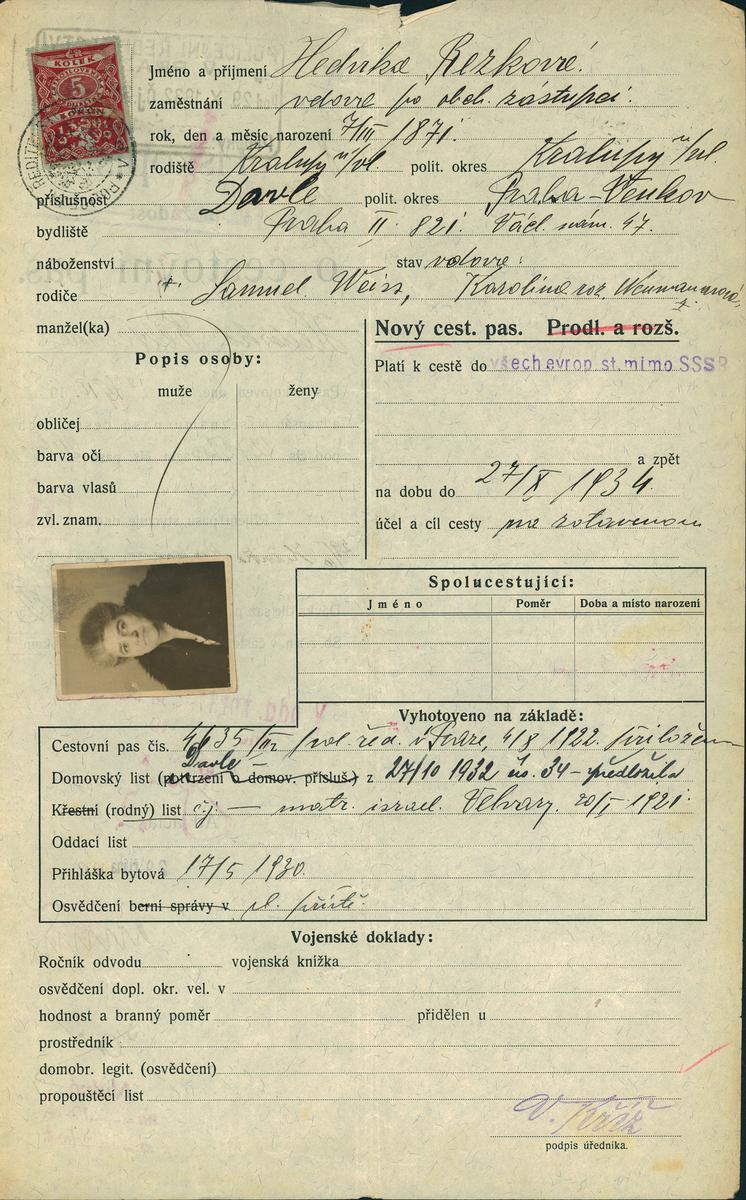 KOLEK
5
KORUN
Jméno a příjmení Hedvika Rezková
zaměstnání vdova po obch. zástupci.
rok, den a měsíc narození 7/III 1871.
rodiště Kralupy n/Vl. polit. okres Kralupy n/Vl.
příslušnost Davle polit. okres Praha-Venkov
bydliště Praha II. 821. Václ. nám. 47.
náboženství stav vdova.
rodiče Samuel Weiss, Karolina roz. Neumannová
manžel(ka)
Popis osoby:
muže ženy
obličej
barva očí
barva vlasů
zvl. znam.
Nový cest. pas. Prodl. a rozš.
Platí k cestě do všech evrop. st. mimo SSSR
a zpět
na dobu do 27/X 1934.
účel a cíl cesty na zotavenou
Spolucestující:
Jméno Poměr Doba a místo narození
Vyhotoveno na základě:
Cestovní pas čís. pol. řed. v Praze, 4/8 1922.
Davle
Domovský list (potvrzení o domov. přísluš.) z 27/10 1932 čís. 34 – předložila
Křestní (rodný) list čj — matr. israel. Velvary. 20/I 1921.
Oddací list
Přihláška bytová 17/5 1930.
Osvědčení berní správy v
Vojenské doklady:
Ročník odvodu vojenská knížka
osvědčení dopl. okr. vel. v
hodnost a branný poměr přidělen u
prostředník
domobr. legit. (osvědčení)
propouštěcí list
V. Kříž
podpis úředníka.